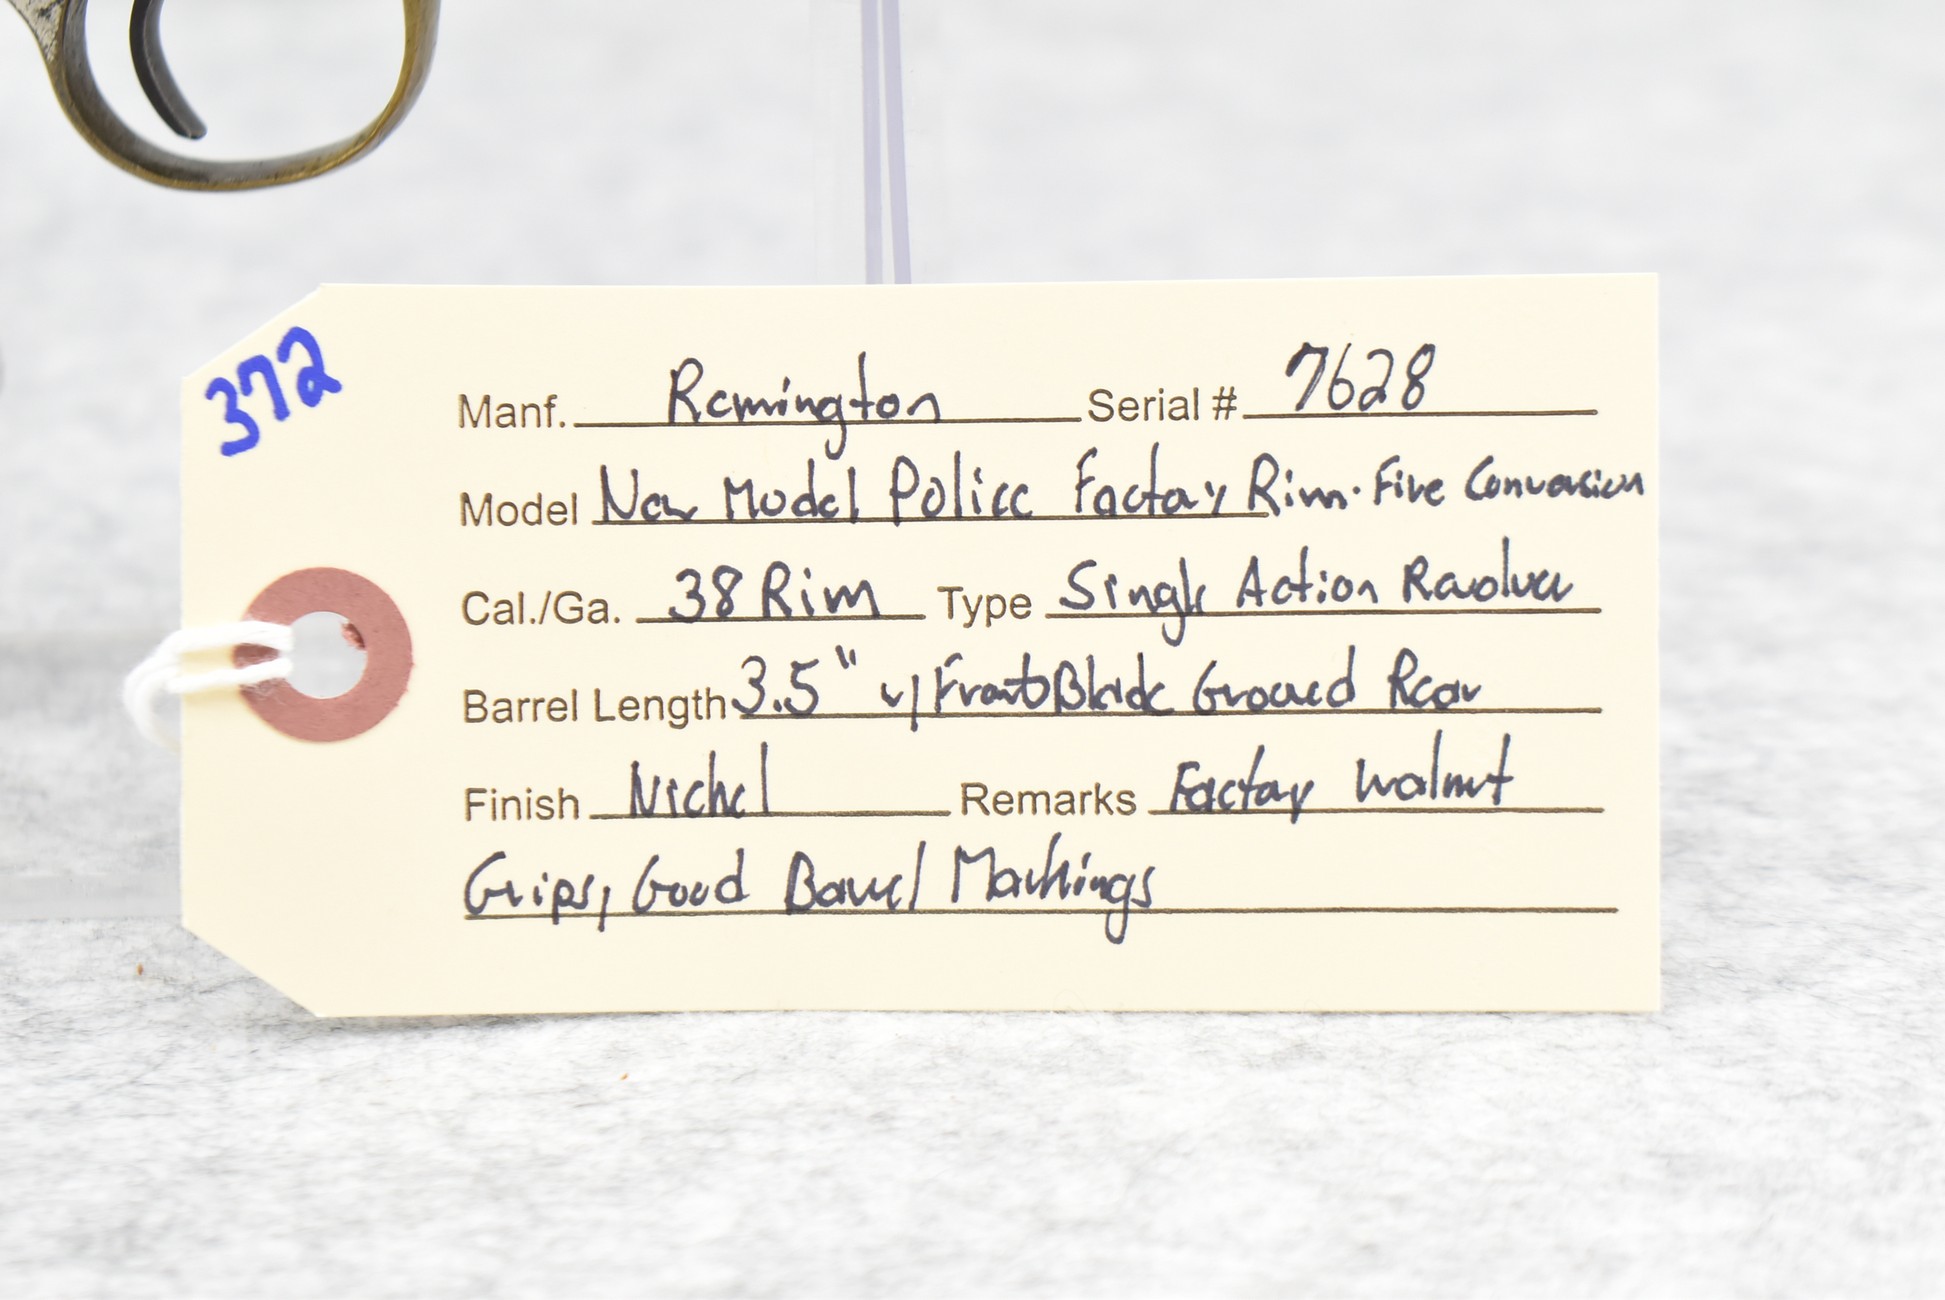 372
Manf. Remington Serial # 7628
Model New Model Police Factory Rim-Fire Conversion
Cal./Ga. 38 Rim Type Single Action Revolver
Barrel Length 3.5" w/ Front Blade Grooved Rear
Finish Nickel Remarks Factory Walnut
Grips, Good Barrel Markings